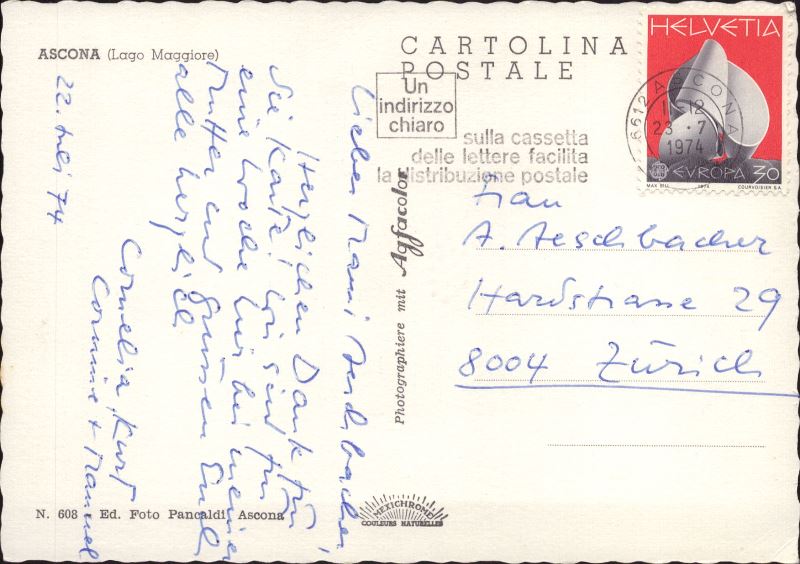 ASCONA (Lago Maggiore)
CARTOLINA
POSTALE
HELVETIA
EVROPA 30
MAX BILL 1974 COURVOISIER S.A.
6612 ASCONA
23.-7
1974
Un
indirizzo
chiaro
sulla cassetta
delle lettere facilita
la distribuzione postale
Frau
A. Aeschbacher
Hardstrasse 29
8004 Zürich
Photographiere mit Agfacolor
Liebes Mami Aeschbacher,
Herzlichen Dank für
die Karte! Wir sind für
eine Woche hier bei meiner
Mutter und grüssen Euch
alle herzlich
Cornelia, Kurt
Corinne + Manuel
22. Juli 74
N. 608 - Ed. Foto Pancaldi, Ascona
MEXICHROME
COULEURS NATURELLES